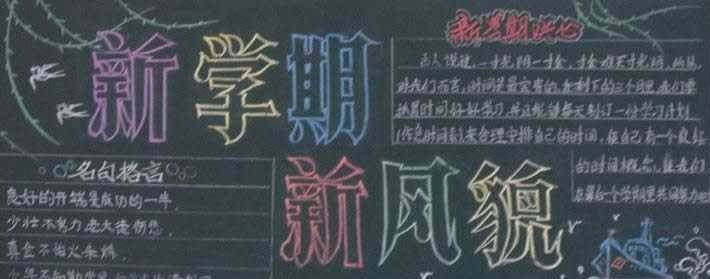 新学期
新风貌
新学期决心
古人说说,一寸光阴一寸金,寸金难买寸光阴,
对我们而言,时间是最宝贵的,在剩下的三个月里,我们要
时间好好学习,并且能够每天制订一份学习计划
作息时间表来合理安排自己的时间,在自己有一个良好
的时间概念,
名句格言
良好的开端是成功的一半.
少壮不努力老大徒伤悲.
真金不怕火来炼.